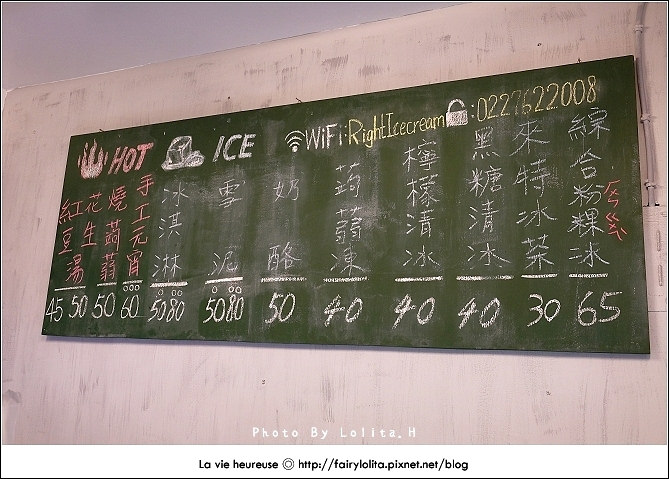 HOT
ICE
WiFi:RightIcecream
:0227622008
紅豆湯
45
花生
50
燒蒟蒻
50
手工元宵
60
冰淇淋
50 80
雪泥
50 80
奶酪
50
蒟蒻凍
40
檸檬清冰
40
黑糖清冰
40
來特冰菜
30
綜合粉粿冰
65
Photo By Lolita.H
La vie heureuse ◎ http://fairylolita.pixnet.net/blog